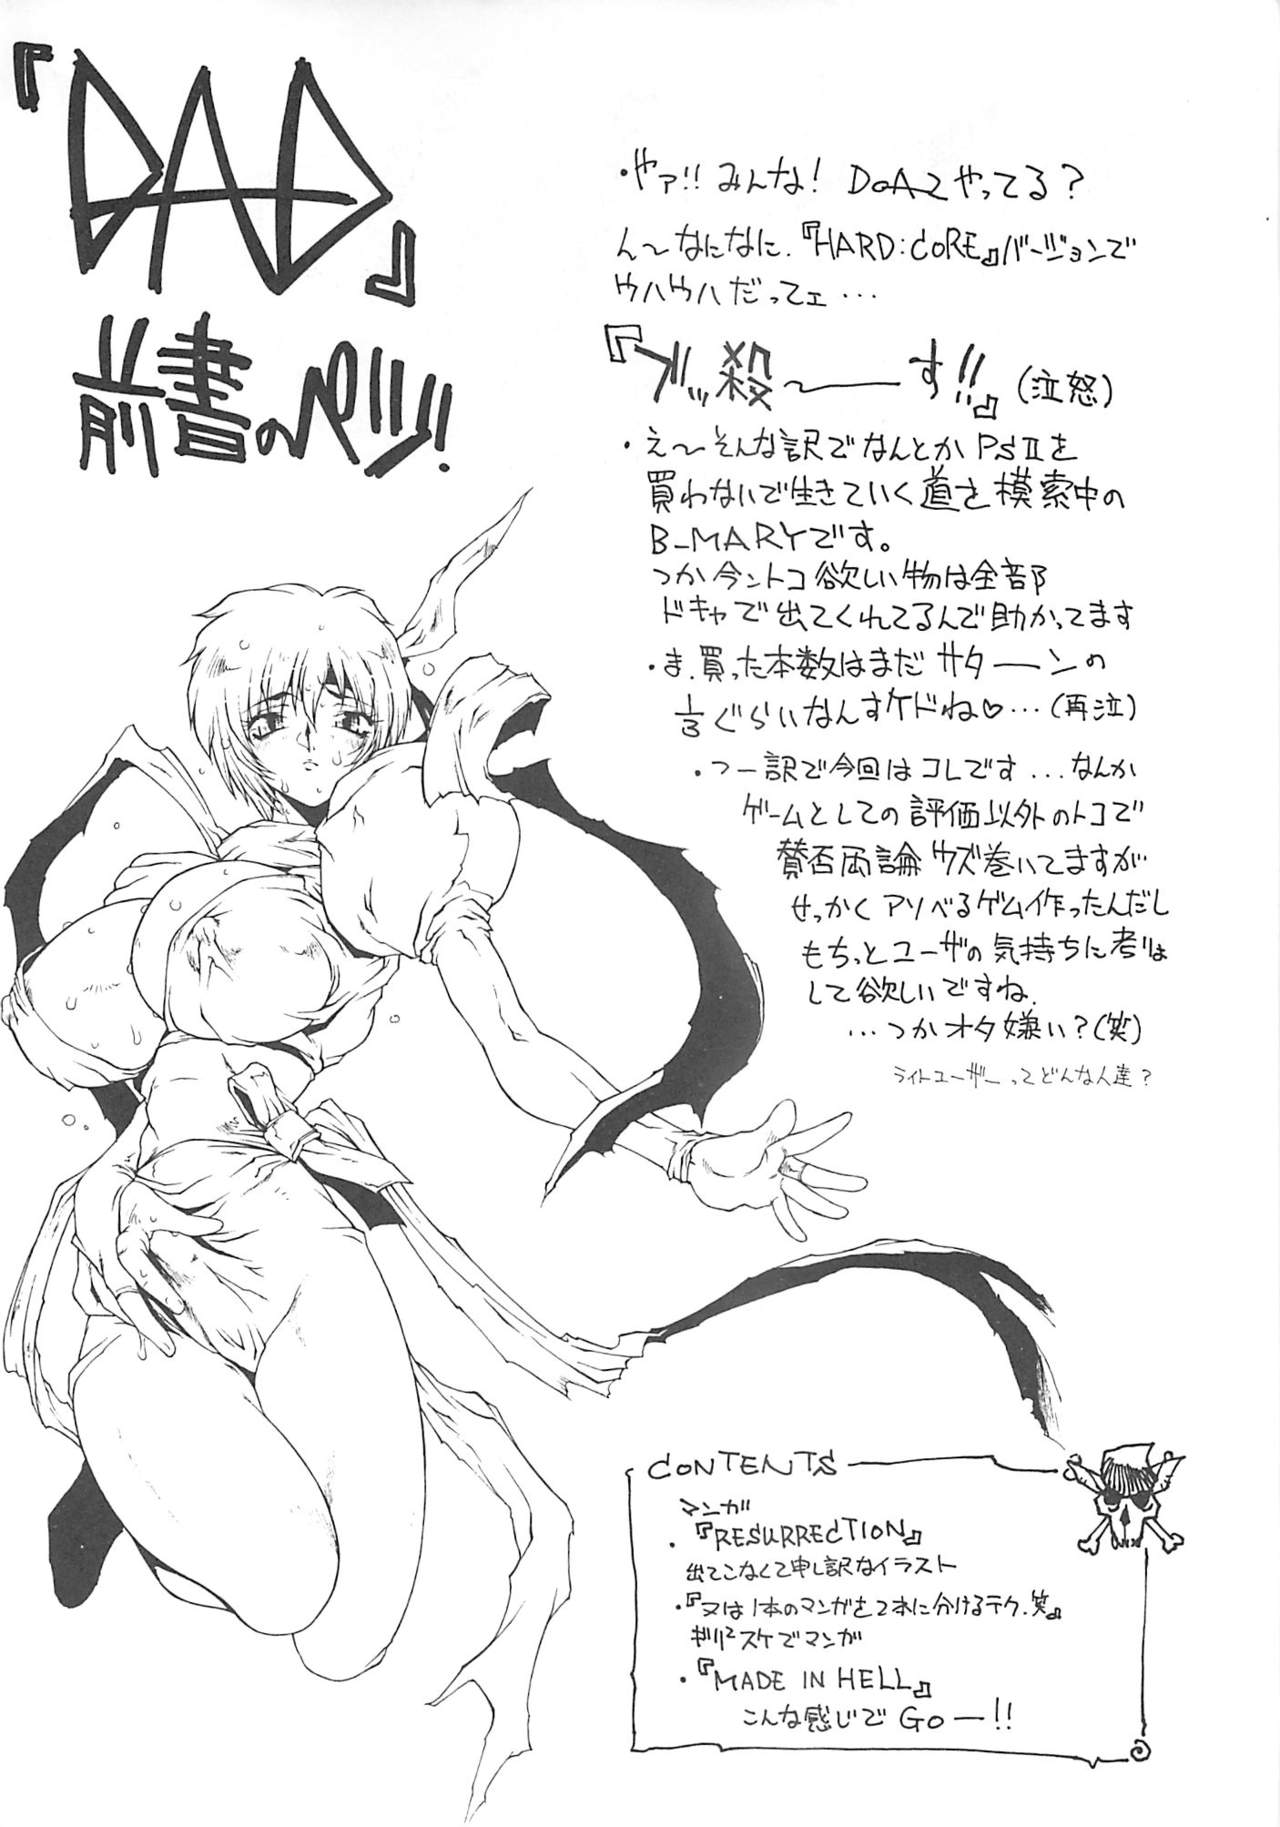 『DAD』
前書のページ!
・やァ!!みんな! DoA2やってる?
ん〜なになに.『HARD:CORE』バージョンで
ウハウハだってェ…
『ブッ殺〜――す!!』(泣怒)
・え〜そんな訳でなんとかPSⅡを
買わないで生きていく道を模索中の
B-MARYです。
つか今ントコ欲しい物は全部
ドキャで出てくれてるんで助かってます
・ま.買った本数はまだサターンの
1/3ぐらいなんすケドね♡…(再泣)
・つー訳で今回はコレです…なんか
ゲームとしての評価以外のトコで
賛否両論ウズ巻いてますが
せっかくアソべるゲーム作ったんだし
もちっとユーザの気持ちに考りょ
して欲しいですね.
…つかオタ嫌い?(笑)
ライトユーザーってどんな人達?
CONTENTS
マンガ
・『RESURRECTION』
出てこなくて申し訳なイラスト
・『又は1本のマンガを2本に分けるテク.笑』
ギリ²スケでマンガ
・『MADE IN HELL』
こんな感じでGO―!!